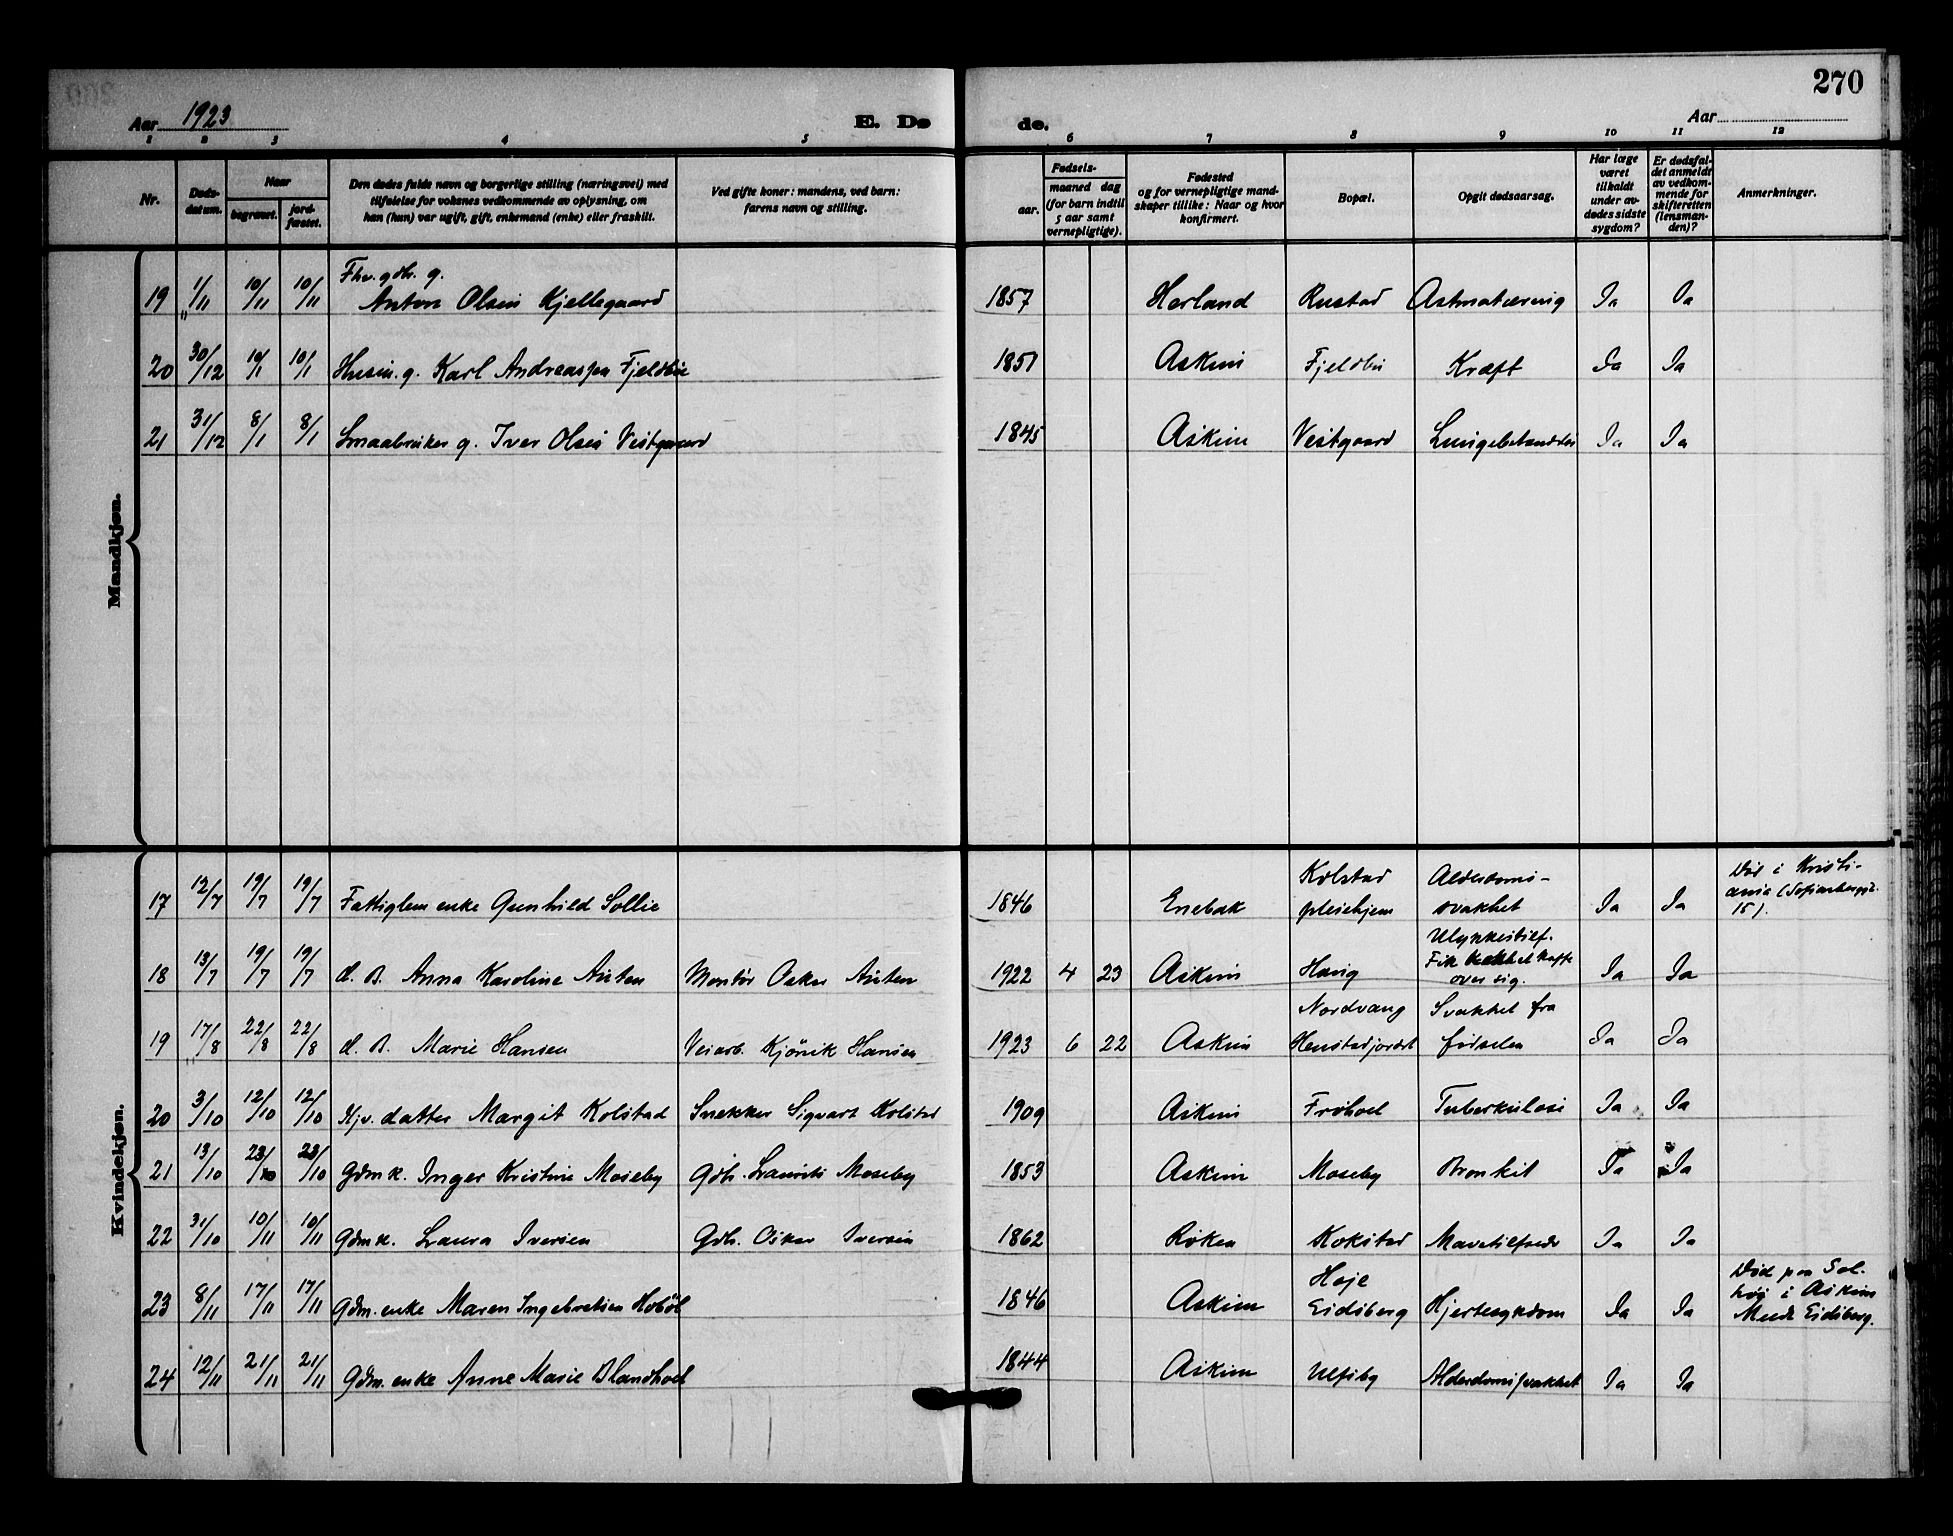 270
Aar 1923
E. Dø
de.
Aar
1 2 3 4 5 6 7 8 9 10 11 12
Nr.
Døds-
datum.
Naar
begravet.
jord-
fæstet.
Den dødes fulde navn og borgerlige stilling (næringsvei) med
tilføielse for voksnes vedkommende av oplysning, om
han (hun) var ugift, gift, enkemand (enke) eller fraskilt.
Ved gifte koner: mandens, ved barn:
farens navn og stilling.
Fødsels-
aar.
maaned dag
(for barn indtil
5 aar samt
vernepligtige).
Fødested
og for vernepligtige mand-
skaper tillike: Naar og hvor
konfirmert.
Bopæl.
Opgit dødsaarsag.
Har læge
været
tilkaldt
under av-
dødes sidste
sygdom?
Er dødsfal-
det anmeldt
av vedkom-
mende for
skifteretten
(lensman-
den)?
Anmerkninger.
Mandkjøn.
Fhv. gdbr. g.
19 1/11 10/11 10/11 Anton Olsen Kjellegaard 1857 Herland Rustad Ja Ja
20 30/12 10/1 10/1 Husm. g. Karl Andreassen Fjeldbu 1851 Askim Fjeldbu Kræft Ja Ja
21 31/12 8/1 8/1 Smaabruker g. Iver Olsen Vestgaard 1845 Askim Vestgaard Lungebetændelse Ja Ja
Kvindekjøn.
Kolstad Alderdoms- Død i Kristi-
17 12/7 19/7 19/7 Fattiglem enke Gunhild Sollie 1846 Enebak pleiehjem svakhet Ja Ja ania (Sofienbergg.
15).
Ulykkestilf.
18 13/7 19/7 19/7 d. B. Anna Karoline Auten Montør Oskar Auten 1922 4 23 Askim Haug Fik kokhet kaffe Ja Ja
over sig.
Nordvang Svakhet fra
19 17/8 22/8 22/8 d. B. Marie Hansen Veiarb. Kjönik Hansen 1923 6 22 Askim Henstadjordet fødselen Ja Ja
20 3/10 12/10 12/10 Hjv. datter Margit Kolstad Snekker Sigvart Kolstad 1909 Askim Frøhoel Tuberkulose Ja Ja
21 13/10 23/10 23/10 Gdmk. Inger Kristine Moseby Gdb. Laurits Moseby 1853 Askim Moseby Bronkit Ja Ja
22 31/10 10/11 10/11 Gdmk. Laura Iversen Gdb. Oskar Iversen 1862 Røken Kokstad Ja Ja
Høje Død paa Sol-
23 8/11 17/11 17/11 Gdm. enke Maren Ingebretsen Hobøl 1846 Askim Eidsberg Hjertesykdom Ja Ja høg i Askim
Meldt Eidsberg.
24 12/11 21/11 21/11 Gdm. enke Anne Marie Blandhoel 1844 Askim Ulfsby Alderdomssvakhet Ja Ja